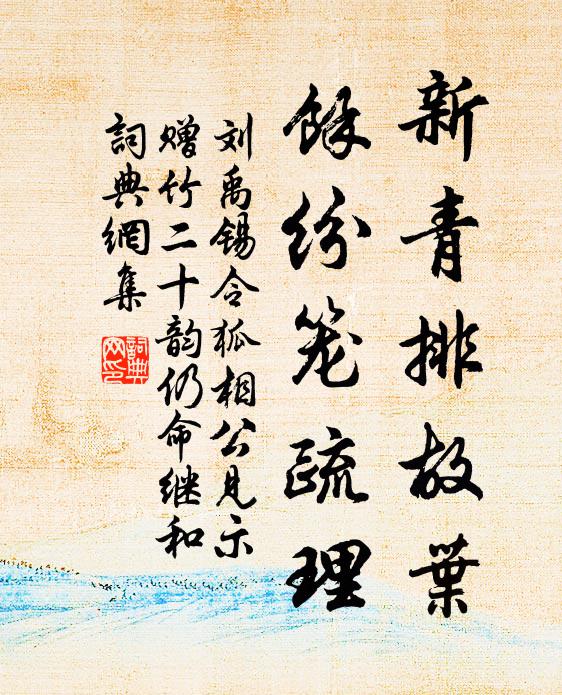 新青排故葉
餘紛笼疏理
刘禹锡令狐相公見示
赠竹二十韵仍命继和
詞典網集
詞典網印